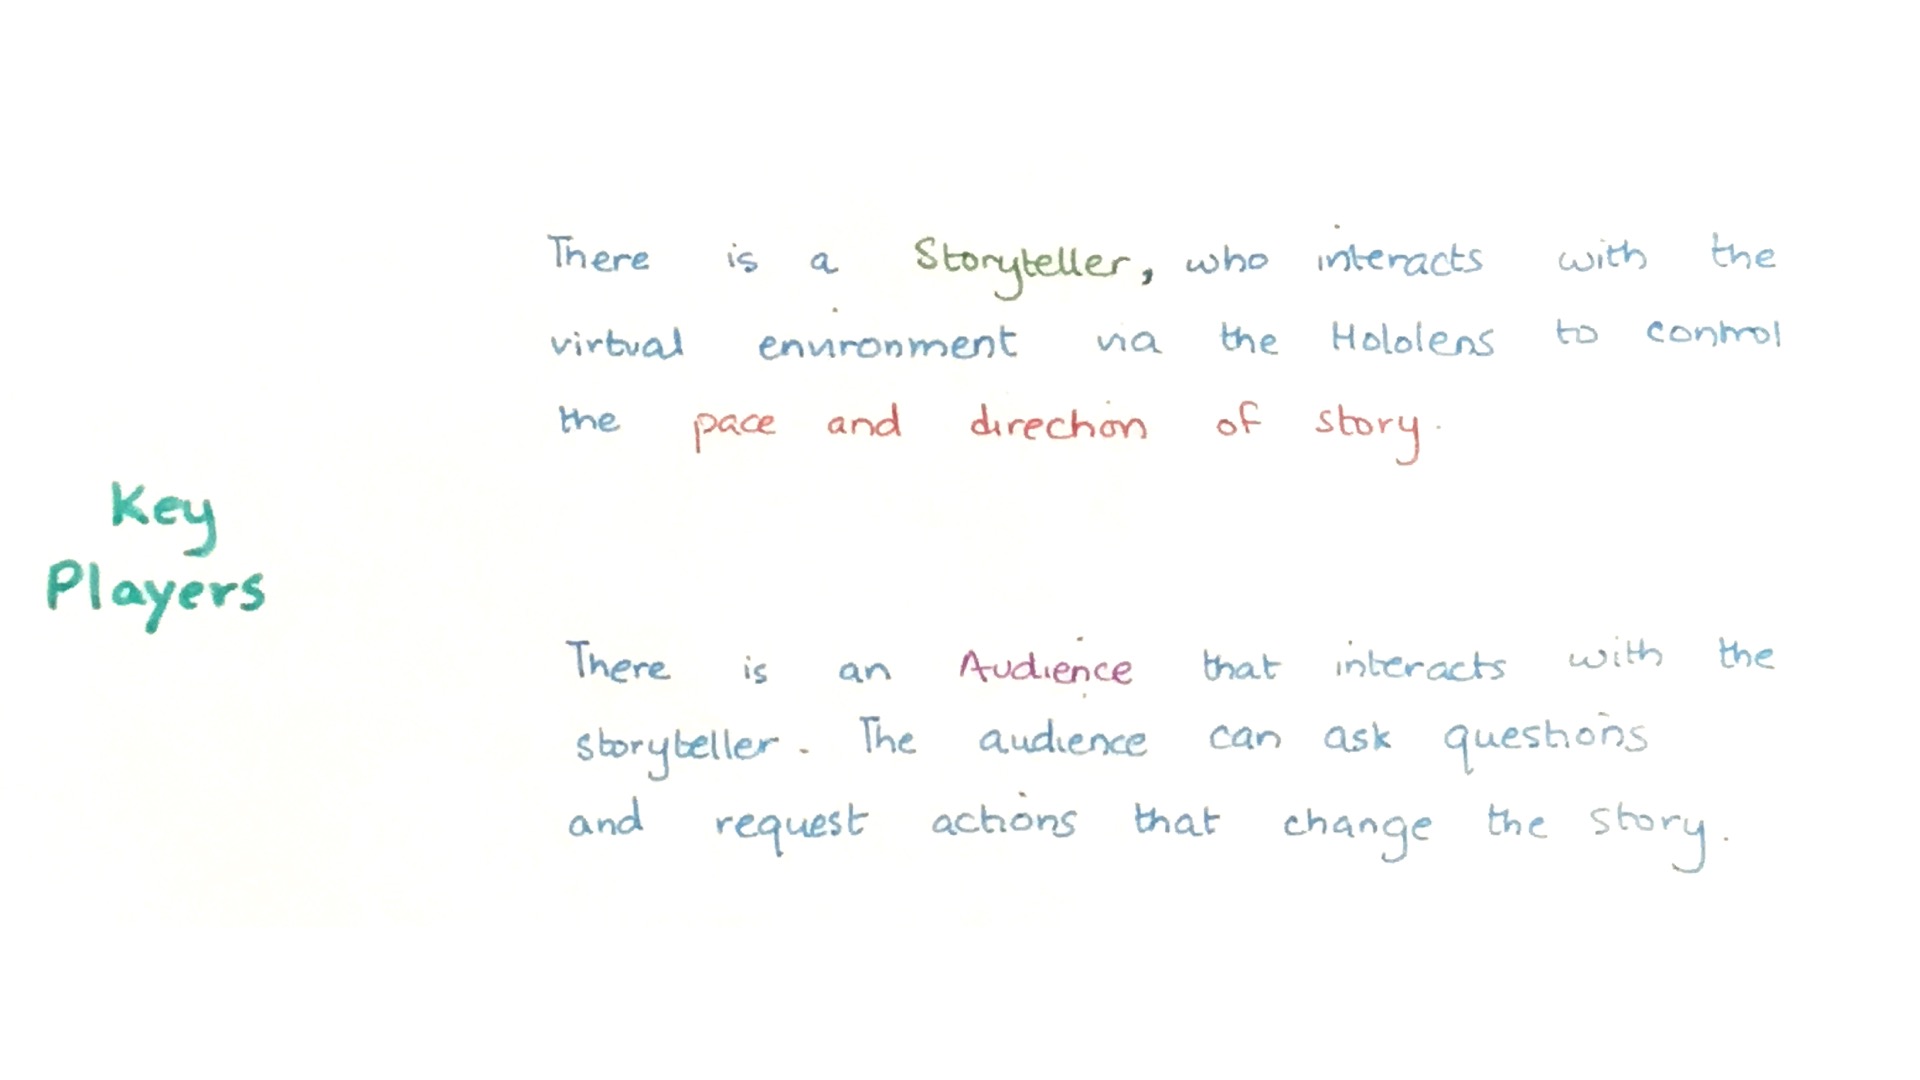 Key
Players
There is a Storyteller, who interacts with the
virtual environment via the Hololens to control
the pace and direction of story.
There is an Audience that interacts with the
storyteller. The audience can ask questions
and request actions that change the story.